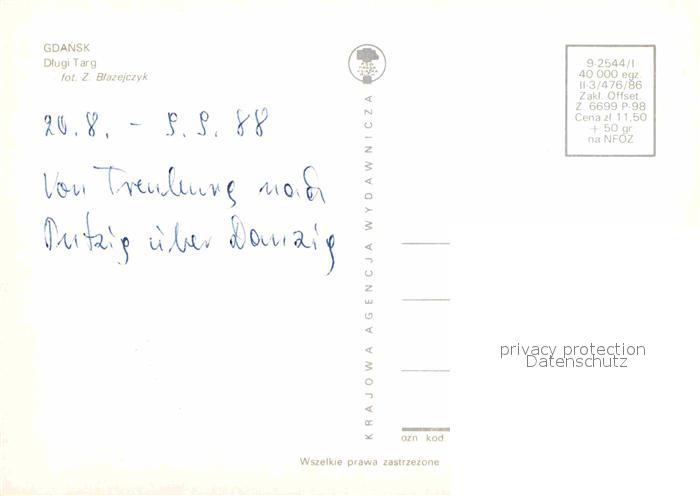 GDAŃSK
Długi Targ
fot. Z. Błażejczyk
20.8. - 9.9.88
Von Trenburg nach
Putzig über Danzig
KRAJOWA AGENCJA WYDAWNICZA
9-2544/I
40 000 egz.
II-3/476/86
Zakł. Offset.
Z. 6699 P-98
Cena zł 11,50
+ 50 gr
na NFOZ
privacy protection
Datenschutz
ozn kod
Wszelkie prawa zastrzeżone